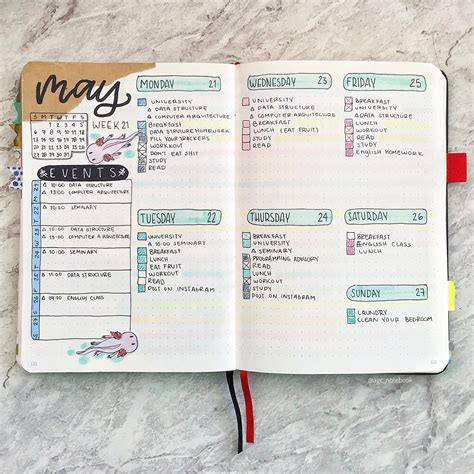 may
WEEK 21
S M T W T F S
EVENTS
10:00 DATA STRUCTURE
13:00 COMPUTER ARQUITECTURE
10:00 SEMINARY
10:00 DATA STRUCTURE
13:00 COMPUTER ARQUITECTURE
10:00 SEMINARY
DATA STRUCTURE
ENGLISH CLASS
MONDAY 21
UNIVERSITY
DATA STRUCTURE
COMPUTER ARQUITECTURE
BREAKFAST
DATA STRUCTURE HOMEWORK
FILL YOUR TRACKERS
WORKOUT
DON'T EAT SHIT
STUDY
READ
TUESDAY 22
UNIVERSITY
SEMINARY
BREAKFAST
LUNCH
EAT FRUIT
WORKOUT
READ
POST ON INSTAGRAM
WEDNESDAY 23
UNIVERSITY
DATA STRUCTURE
COMPUTER ARQUITECTURE
BREAKFAST
LUNCH (EAT FRUIT)
STUDY
READ
THURSDAY 24
BREAKFAST
UNIVERSITY
SEMINARY
PROGRAMMING ADVISORY
READ
LUNCH
WORKOUT
STUDY
POST ON INSTAGRAM
FRIDAY 25
BREAKFAST
UNIVERSITY
DATA STRUCTURE
LUNCH
WORKOUT
STUDY
READ
ENGLISH HOMEWORK
SATURDAY 26
BREAKFAST
ENGLISH CLASS
LUNCH
SUNDAY 27
LAUNDRY
CLEAN YOUR BEDROOM